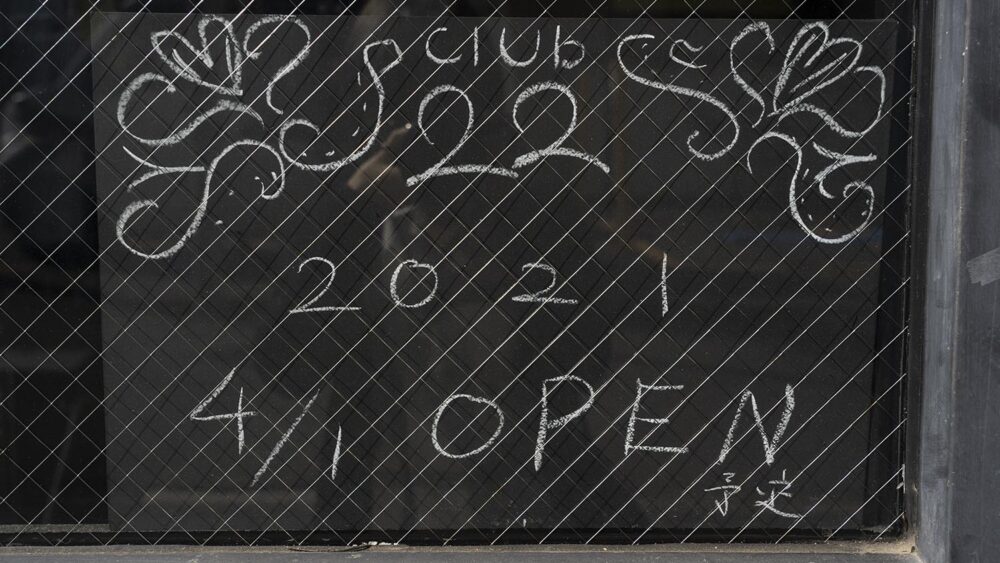 CLUB
22
2021
4/1 OPEN
予定